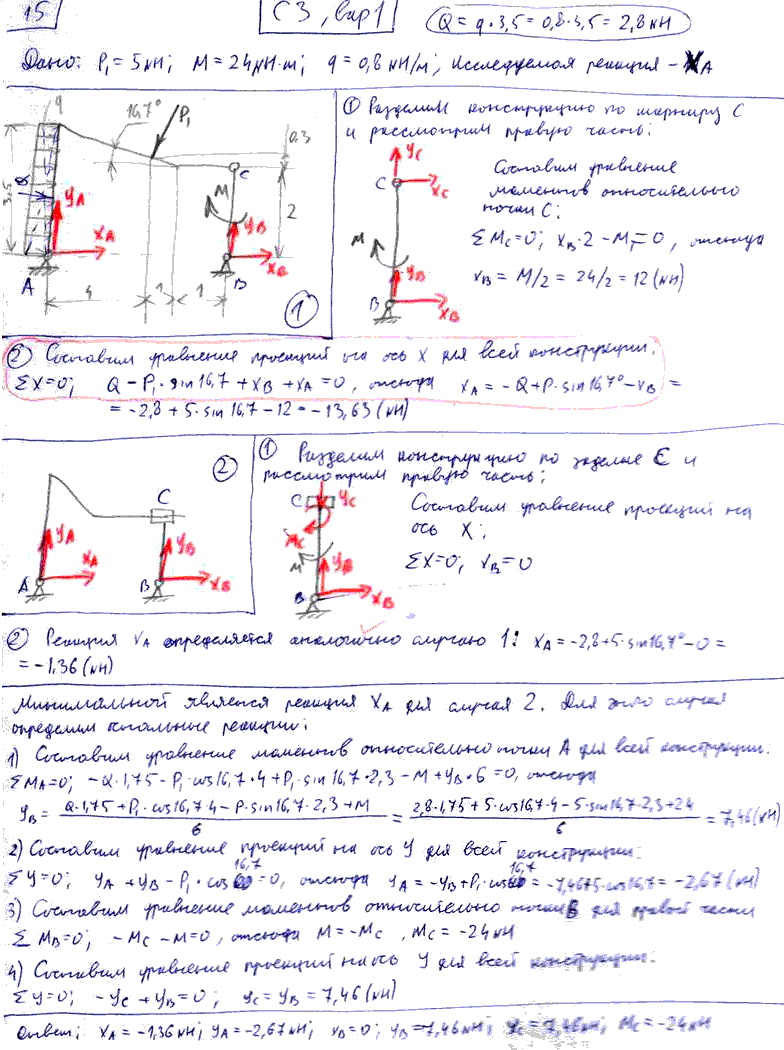 15
С3, вар1
Q = q·3,5 = 0,8·3,5 = 2,8 кН
Дано: P₁ = 5 кН; M = 24 кН·м; q = 0,8 кН/м; Исследуемая реакция – XA
q
16,7°
P₁
0.3
3,5
Q
YA
XA
A
C
M
2
YB
XB
B
4
1
1
①
① Разделим конструкцию по шарниру C
и рассмотрим правую часть:
YC
C
XC
M
YB
B
XB
Составим уравнение
моментов относительно
точки C:
ΣMC=0; XB·2 – M = 0, отсюда
XB = M/2 = 24/2 = 12 (кН)
② Составим уравнение проекций на ось X для всей конструкции.
ΣX=0; Q – P₁·sin16,7 + XB + XA = 0, отсюда XA = –Q + P·sin16,7° – XB =
= –2,8 + 5·sin16,7 – 12 = –13,63 (кН)
②
C
YA
XA
A
YB
XB
B
① Разделим конструкцию по заделке C и
рассмотрим правую часть;
C
YC
MC
M
YB
B
XB
Составим уравнение проекций на
ось X;
ΣX=0; XB=0
② Реакция XA определяется аналогично случаю 1: XA = –2,8+5·sin16,7° – 0 =
= –1,36 (кН)
Минимальной является реакция XA для случая 2. Для этого случая
определим остальные реакции:
1) Составим уравнение моментов относительно точки A для всей конструкции.
ΣMA=0; –Q·1,75 – P₁·cos16,7·4 + P₁·sin16,7·2,3 – M + YB·6 = 0, отсюда
YB = Q·1,75 + P₁·cos16,7·4 – P·sin16,7·2,3 + M / 6 = 2,8·1,75 + 5·cos16,7·4 – 5·sin16,7·2,3 + 24 / 6 = 7,46 (кН)
2) Составим уравнение проекций на ось Y для всей конструкции.
ΣY=0; YA + YB – P₁·cos16,7 = 0, отсюда YA = –YB + P₁·cos16,7 = –7,46+5·cos16,7 = –2,67 (кН)
3) Составим уравнение моментов относительно точки B для правой части
ΣMB=0; –MC – M = 0, отсюда M = –MC, MC = –24 кН
4) Составим уравнение проекций на ось Y для всей конструкции.
ΣY=0; –YC + YB = 0; YC = YB = 7,46 (кН)
Ответ: XA = –1,36 кН; YA = –2,67 кН; XB = 0; YB = 7,46 кН; YC = 7,46 кН; MC = –24 кН